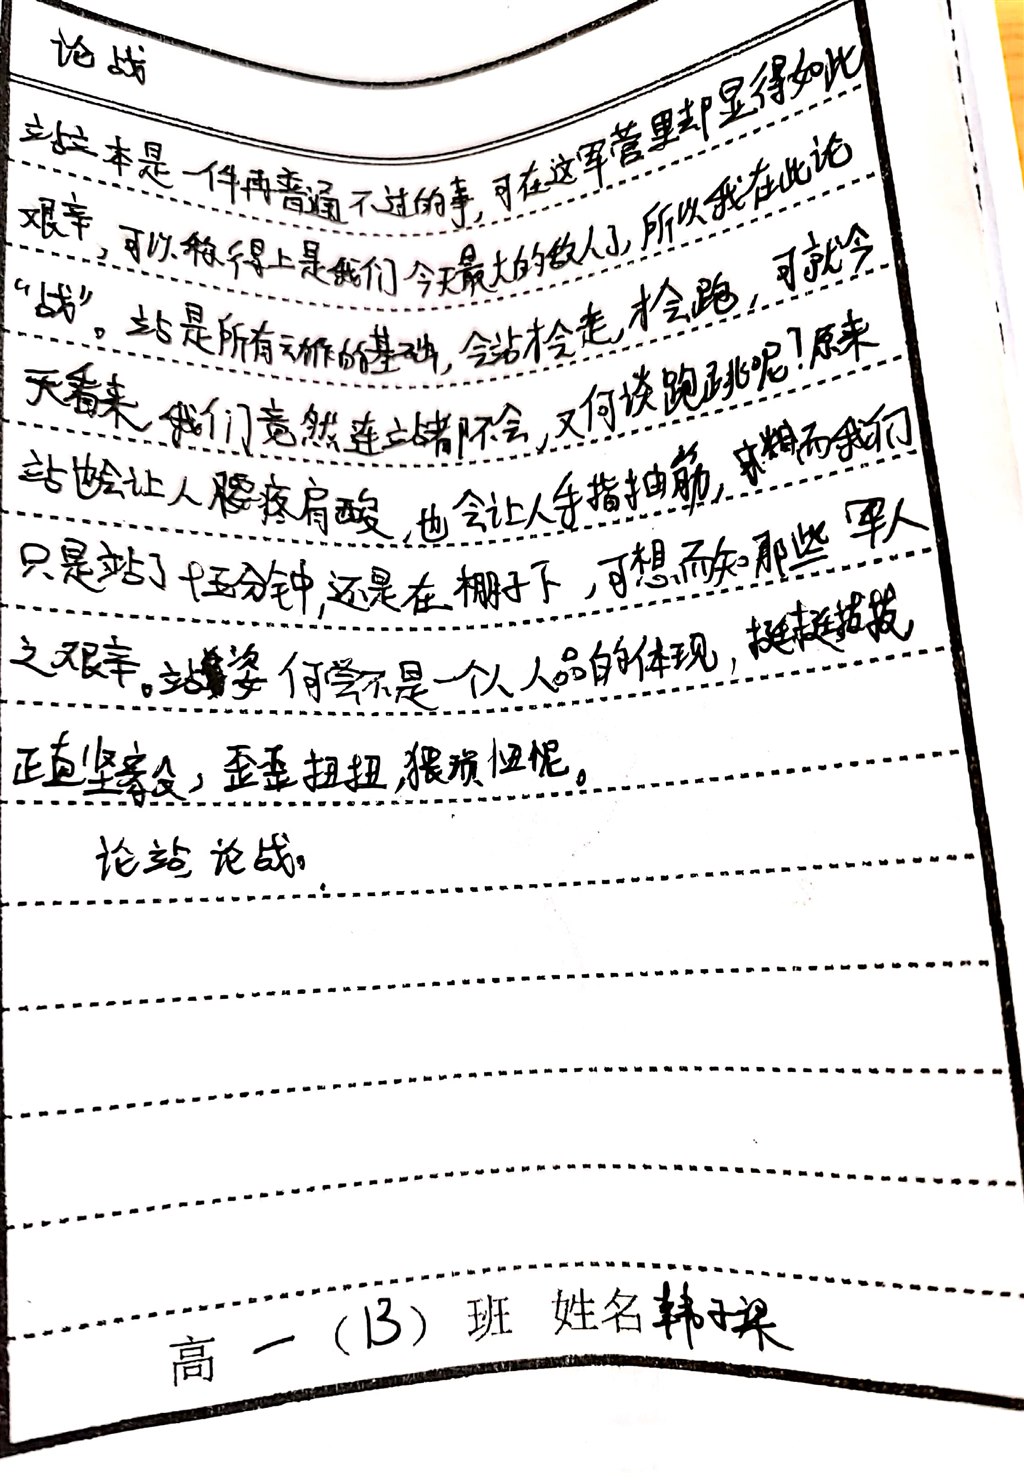 论战
站立本是一件再普通不过的事，可在这军营里却显得如此
艰辛，可以称得上是我们今天最大的敌人了，所以我在此论
“战”。站是所有动作的基础，会站才会走，才会跑，可就今
天看来，我们竟然连站都不会，又何谈跑跳呢？原来
站也会让人腰疼肩酸，也会让人手指抽筋，而我们
只是站了十五分钟，还是在棚子下，可想而知那些军人
之艰辛。站姿何尝不是一个人人品的体现，挺挺拔拔
正直坚毅，歪歪扭扭，猥琐忸怩。
论站，论战。
高一（13）班 姓名韩子梁